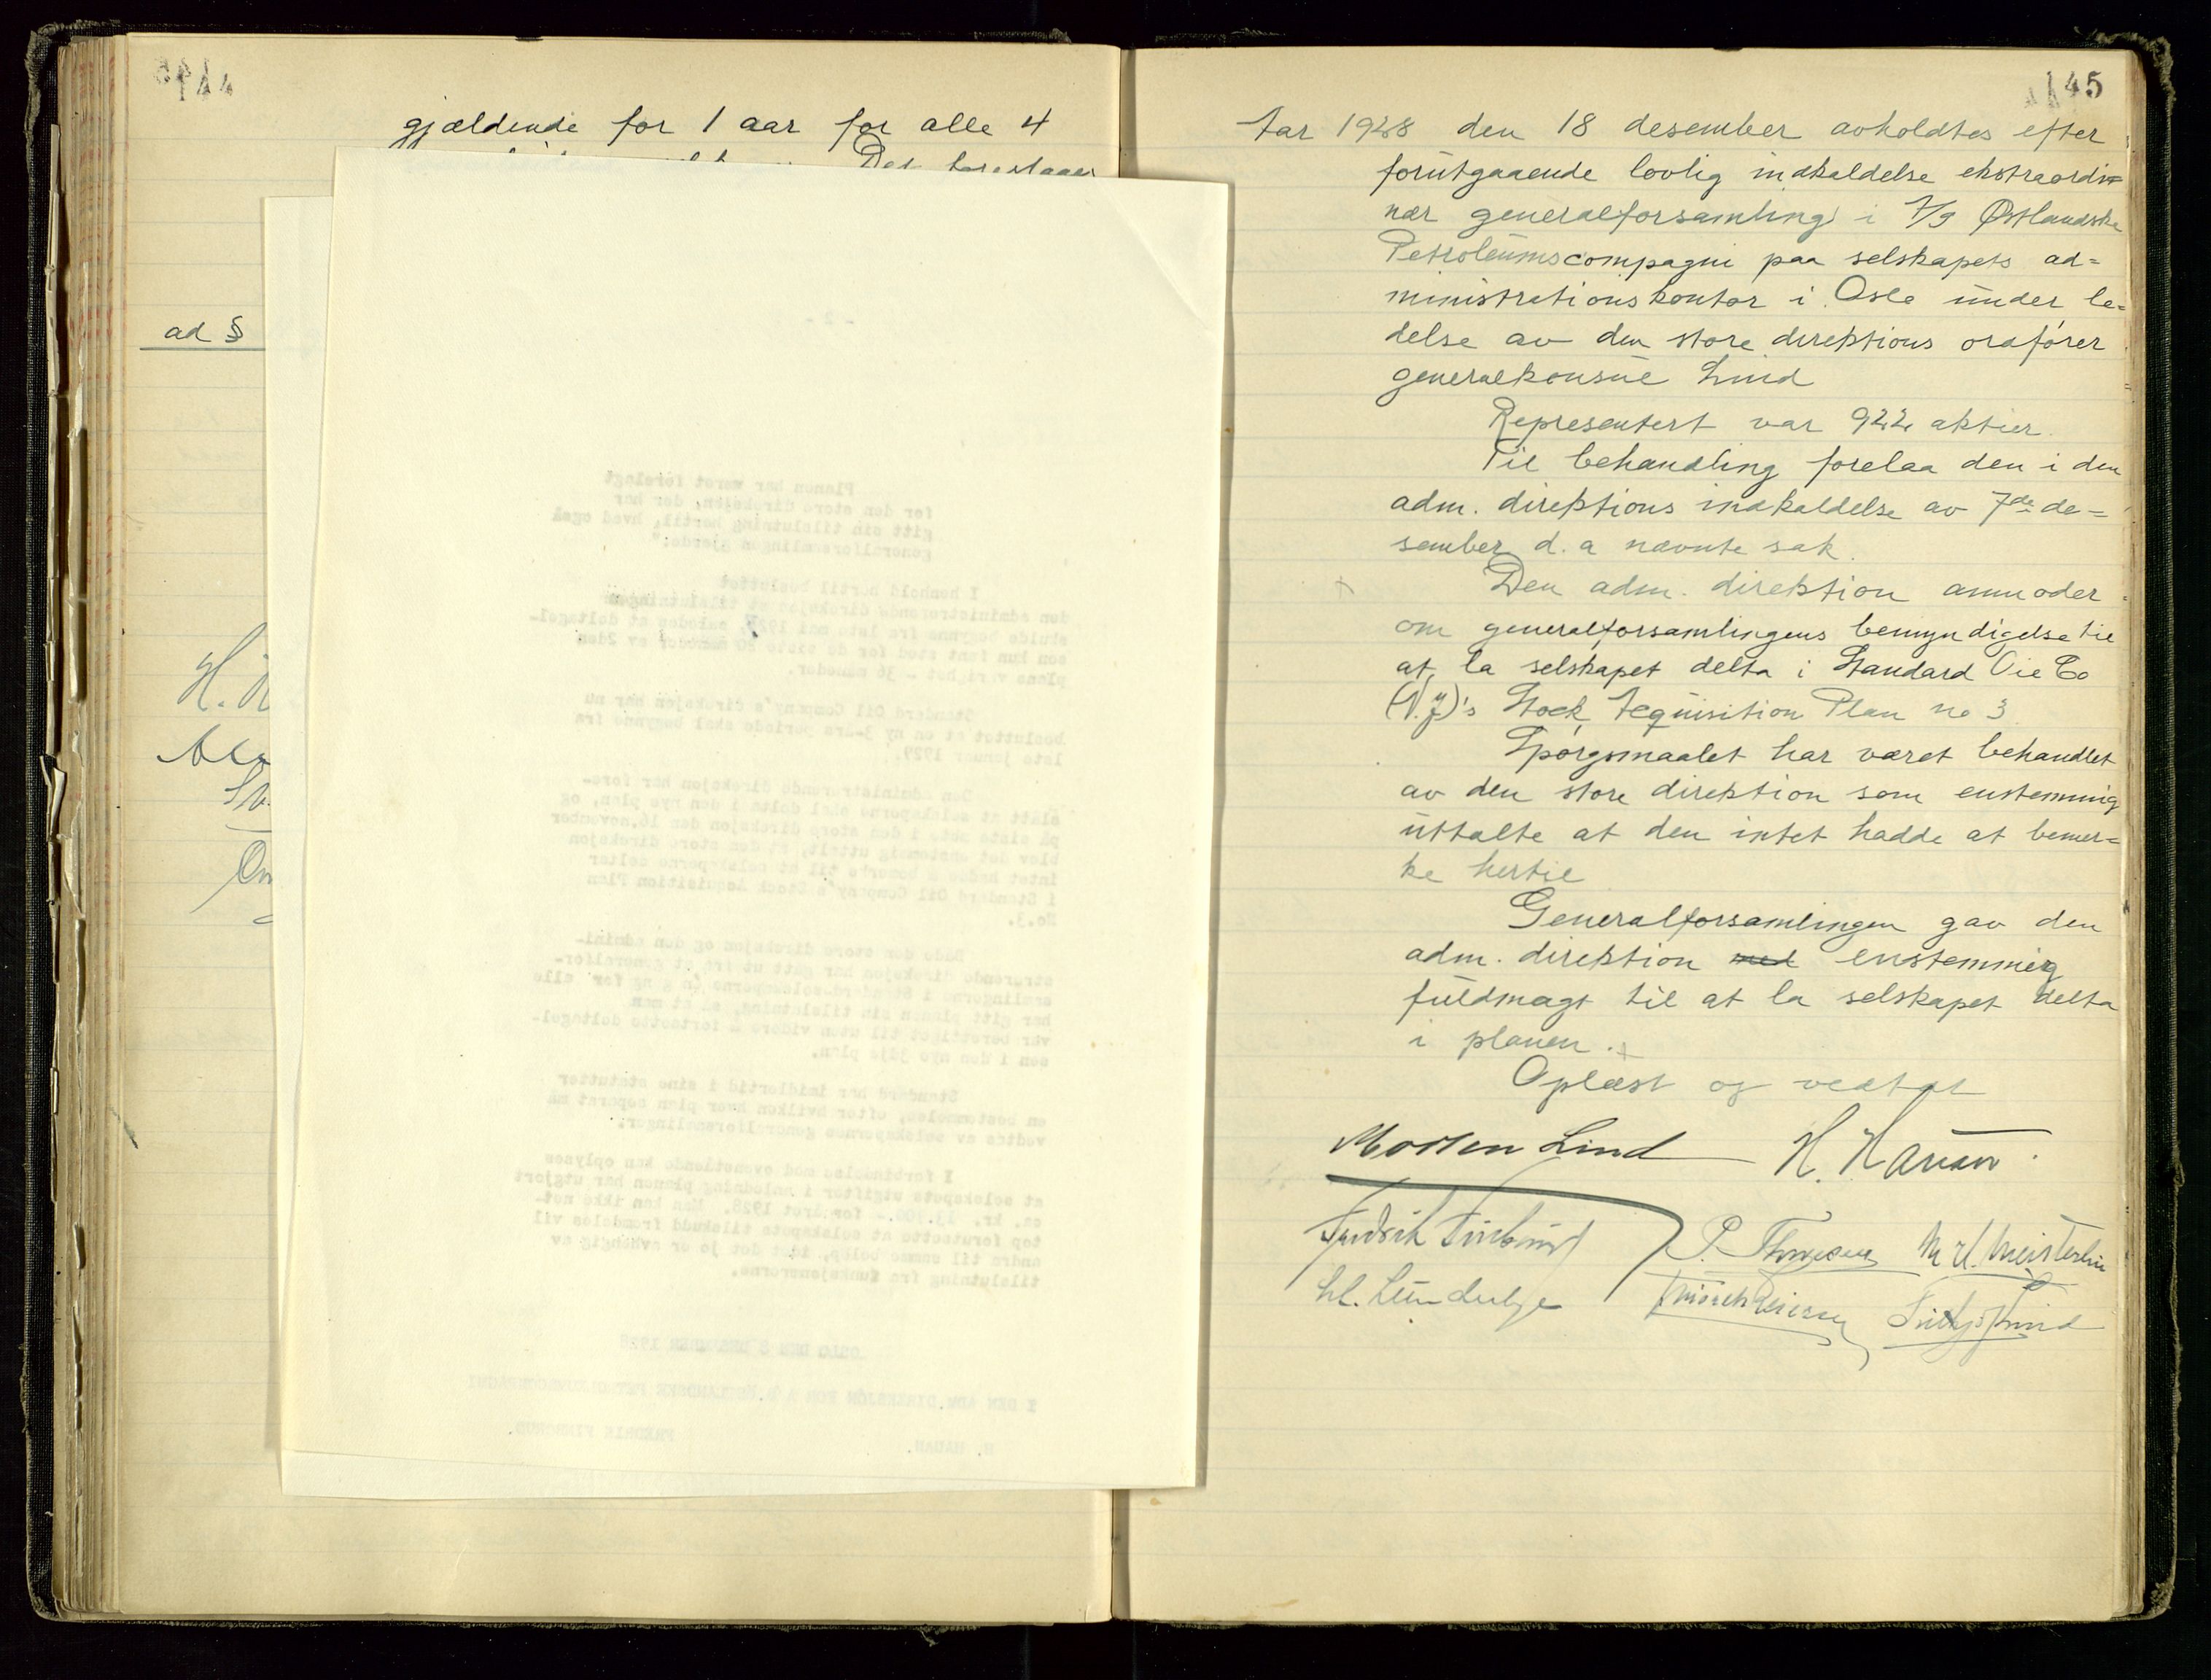 144
gjældende for 1 aar for alle 4
Det foreslaaes
ad §
H. H
- 2 -
Planen har været forelagt
for den store direksjon, der har
gitt sin tilslutning hertil, hvad også
generalforsamlingen gjorde."
I henhold hertil besluttet
den administrerende direksjon at tilslutningen
skulde begynne fra 1ste mai 1927, saaledes at deltagel-
sen kun fant sted for de siste 20 måneder av 2den
plans varighet - 36 måneder.
Standard Oil Company's direksjon har nu
besluttet at en ny 3-års periode skal begynne fra
1ste januar 1929.
Den administrerende direksjon har fore-
slått at selskapene skal delta i den nye plan, og
på siste møte i den store direksjon den 16.november
blev det enstemmig uttalt, at den store direksjon
intet hadde å bemerke til at selskapene deltar
i Standard Oil Company's Stock Acquisition Plan
No.3.
Både den store direksjon og den admini-
strerende direksjon har gått ut fra at generalfor-
samlingene i Standardselskapene én gang for alle
har gitt planen sin tilslutning, så at man
var berettiget til uten videre å fortsette deltagel-
sen i den nye 3dje plan.
Standard har imidlertid i sine statutter
en bestemmelse, efter hvilken hver plan separat må
vedtas av selskapenes generalforsamlinger.
I forbindelse med ovenstående kan oplyses
at selskapets utgifter i anledning planen har utgjort
ca. kr. for året 1928. Man kan ikke net-
top forutsette at selskapets tilskudd fremdeles vil
andra til samme beløp, idet det jo er avhengig av
tilslutning fra funksjonærerne.
OSLO DEN 8 DESEMBER 1928
I DEN ADM. DIREKSJON FOR A/S ØSTLANDSKE PETROLEUMSCOMPAGNI
H. HAUAN. FREDRIK FINBORUD.
145
Aar 1928 den 18 desember avholdtes efter
forutgaaende lovlig indkaldelse ekstraordi=
nær generalforsamling i A/S Østlandske
Petroleumscompagni paa selskapets ad=
ministrationskontor i Oslo under le=
delse av den store direktions ordfører
generalkonsul Lind
Representert var 922 aktier.
Til behandling forelaa den i den
adm. direktions indkaldelse av 7de de=
sember d. a nævnte sak.
Den adm. direktion anmoder
om generalforsamlingens bemyndigelse til
at la selskapet delta i Standard Oil Co
(N.J)'s Stock Acquisition Plan no 3
Spørgsmaalet har været behandlet
av den store direktion som enstemmig
uttalte at den intet hadde at bemer=
ke hertil
Generalforsamlingen gav den
adm. direktion med enstemmig
fuldmagt til at la selskapet delta
i planen.
Oplæst og vedtat
Morten Lind H. Hauan.
P. Thomesen